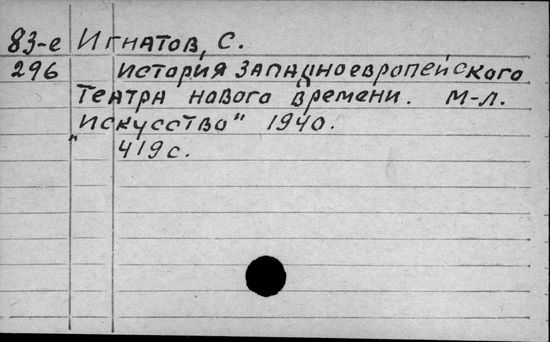 83-е Игнатов, С.
296 История Западноевропейского
Театра нового времени. М-Л.
"Искусство" 1940.
419 с.